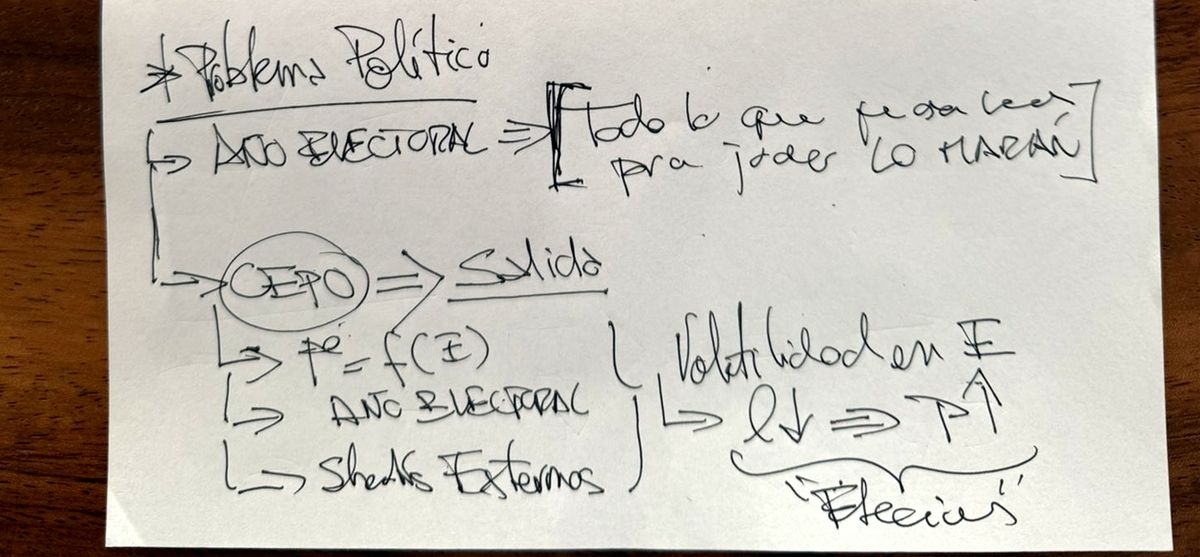 * Problema Político
↳ AÑO ELECTORAL ⇒ [Todo lo que pueda hacer
para joder LO HARÁN]
↳ CEPO ⇒ Salida
↳ Ṗᵉ = f(E)
↳ AÑO ELECTORAL
↳ Shocks Externos
Volatilidad en E
↳ l↓ ⇒ P↑